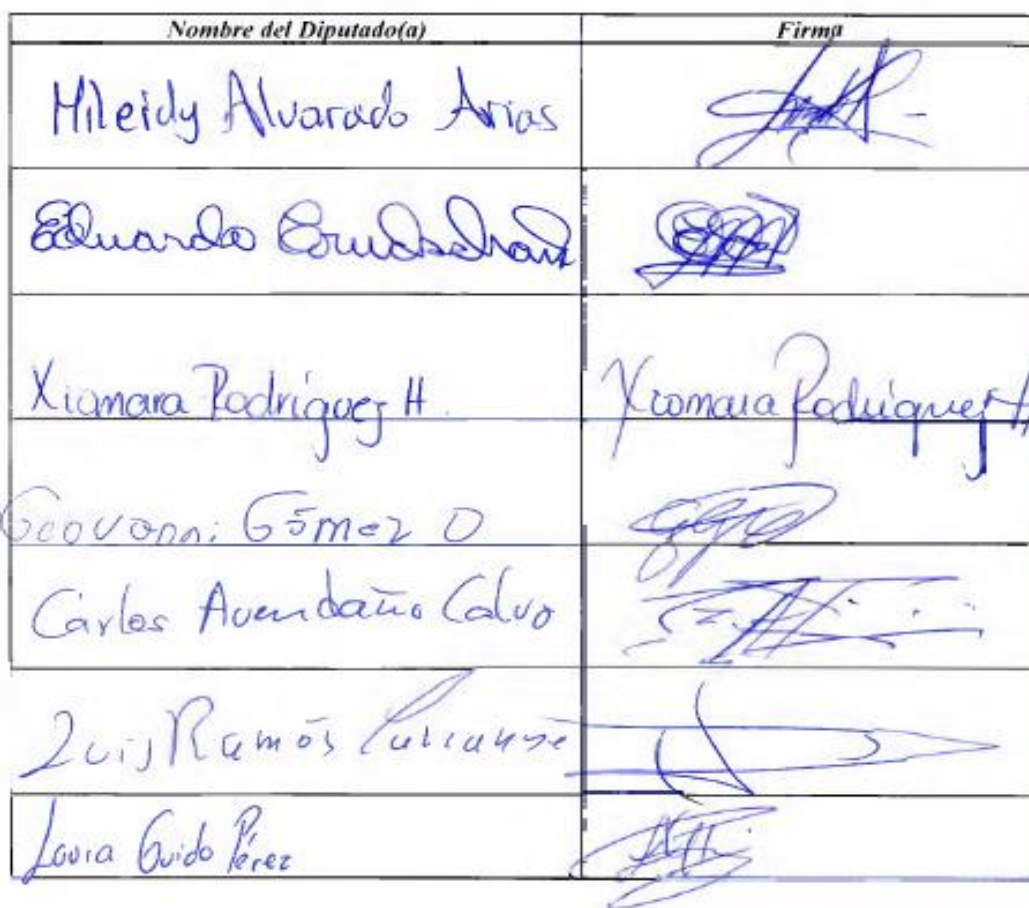 Nombre del Diputado(a) Firma
Mileidy Alvarado Arias
Eduardo
Xiomara Rodríguez H. Xiomara Rodríguez H
Geovanni Gómez O
Carlos Avendaño Calvo
Luis Ramón
Laura Guido Pérez